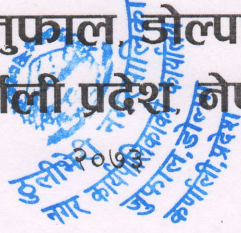 जुफाल, डोल्प
र्णाली प्रदेश, नेप
२०७३
ठूलीभेरी नगरपालिका
नगर कार्यपालिकाको कार्यालय
जुफाल, डोल्पा
कर्णाली प्रदेश